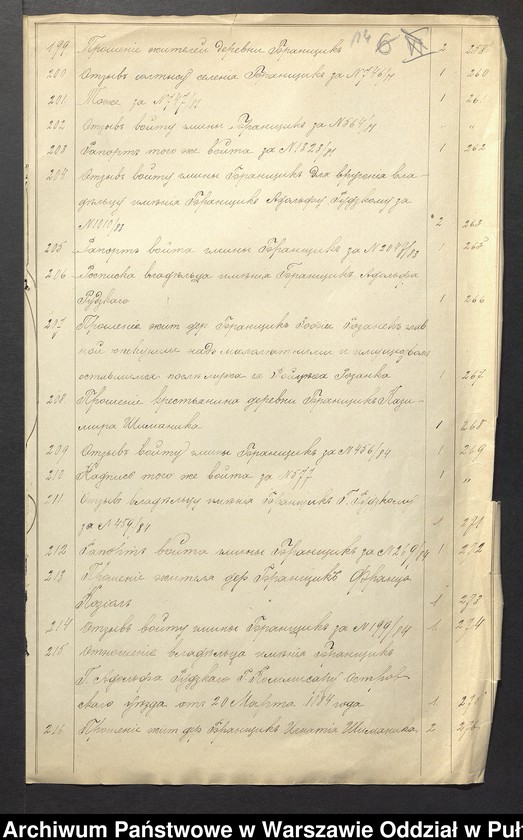 14 6 VI
199 Прошеніе жителей деревни Бранщикъ 2 258
200 Отзывъ солтысу селенія Бранщикъ за N 746/81 1 260
201 Тоже за N 747/81 1 261
202 Отзывъ войту гмины Бранщикъ за N 564/81 "
203 Рапортъ того же войта за N 1823/81 1 262
204 Отзывъ войту гмины Бранщикъ для врученія вла-
дѣльцу имѣнія Бранщикъ Адольфу Рудзкому за
N 1010/83 2 263
205 Рапортъ войта гмины Бранщикъ за N 2047/83 1 265
206 Росписка владѣльца имѣнія Бранщикъ Адольфа
Рудзкаго 1 266
207 Прошеніе жит дер Бранщикъ глав
ной опекунши надъ малолѣтними и имуществомъ
оставшимся послѣ мужа ея Розанка 1 267
208 Прошеніе крестьянина деревни Бранщикъ Кази-
мира Шиманика 1 268
209 Отзывъ войту гмины Бранщикъ за N 456/84 1 269
210 Надпись того же войта за N 577 1 "
211 Отзывъ владѣльцу имѣнія Бранщикъ Г. Рудзкому
за N 459/84 1 271
212 Рапортъ войта гмины Бранщикъ за N 269/84 1 272
213 Прошеніе жителя дер Бранщикъ Франца
Козіолъ 1 273
214 Отзывъ войту гмины Бранщикъ за N 199/84 1 274
215 Отношеніе владѣльца имѣнія Бранщикъ
Г. Адольфа Рудзкаго Г. Коммисару Остров
скаго уѣзда отъ 20 Марта 1884 года 1 275
216 Прошеніе жит дер Бранщикъ Игнатія Шиманика 2 276
Archiwum Państwowe w Warszawie Oddział w Puł